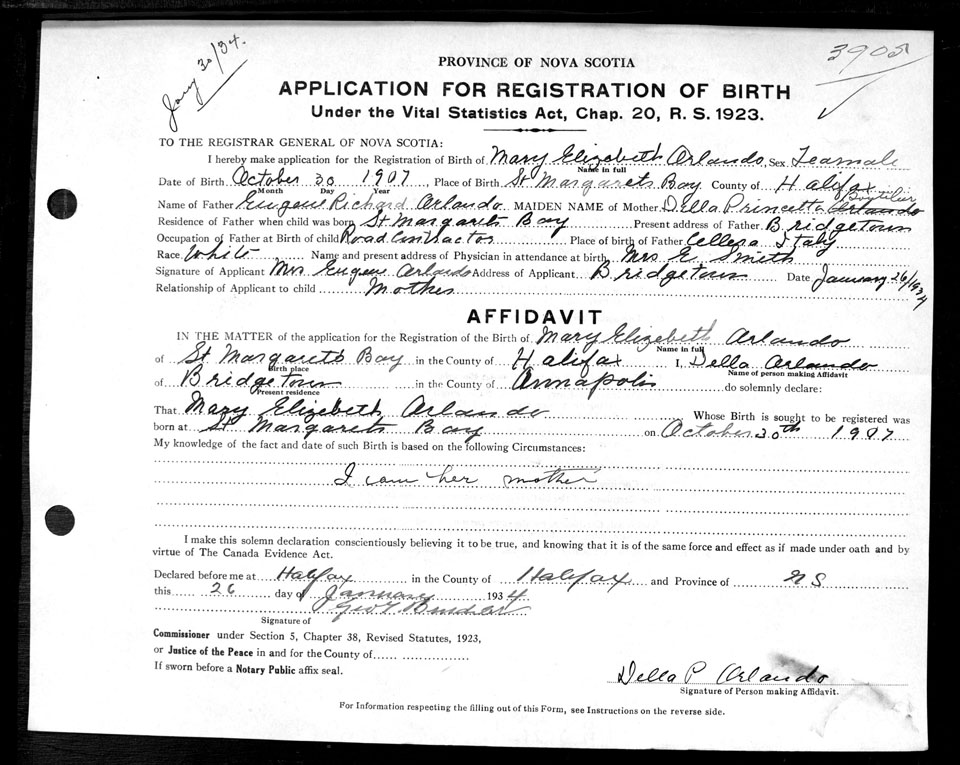 Jany 30/34.
3905
PROVINCE OF NOVA SCOTIA
APPLICATION FOR REGISTRATION OF BIRTH
Under the Vital Statistics Act, Chap. 20, R. S. 1923.
TO THE REGISTRAR GENERAL OF NOVA SCOTIA:
I hereby make application for the Registration of Birth of Mary Elizabeth Arlando, Sex Feamale
Name in full
Date of Birth October 30 1907, Place of Birth St Margarets Bay County of Halifax
Month Day Year
Name of Father Eugene Richard Arlando MAIDEN NAME of Mother Della Princetta Arlando
Residence of Father when child was born St Margarets Bay Present address of Father Bridgetown
Occupation of Father at Birth of child Road Contractor Place of birth of Father Italy
Race White Name and present address of Physician in attendance at birth Mrs E. Smith
Signature of Applicant Mrs Eugene Arlando Address of Applicant Bridgetown Date January 26/1934
Relationship of Applicant to child Mother
AFFIDAVIT
IN THE MATTER of the application for the Registration of the Birth of Mary Elizabeth Arlando
Name in full
of St Margarets Bay in the County of Halifax I, Della Arlando
Birth place Name of person making Affidavit
of Bridgetown in the County of Annapolis do solemnly declare:
Present residence
That Mary Elizabeth Arlando Whose Birth is sought to be registered was
born at St Margarets Bay on October 30th 1907
My knowledge of the fact and date of such Birth is based on the following Circumstances:
I am her mother
I make this solemn declaration conscientiously believing it to be true, and knowing that it is of the same force and effect as if made under oath and by
virtue of The Canada Evidence Act.
Declared before me at Halifax in the County of Halifax and Province of N S
this 26 day of January 1934
Signature of
Commissioner under Section 5, Chapter 38, Revised Statutes, 1923,
or Justice of the Peace in and for the County of
If sworn before a Notary Public affix seal.
Della P Arlando
Signature of Person making Affidavit.
For Information respecting the filling out of this Form, see Instructions on the reverse side.